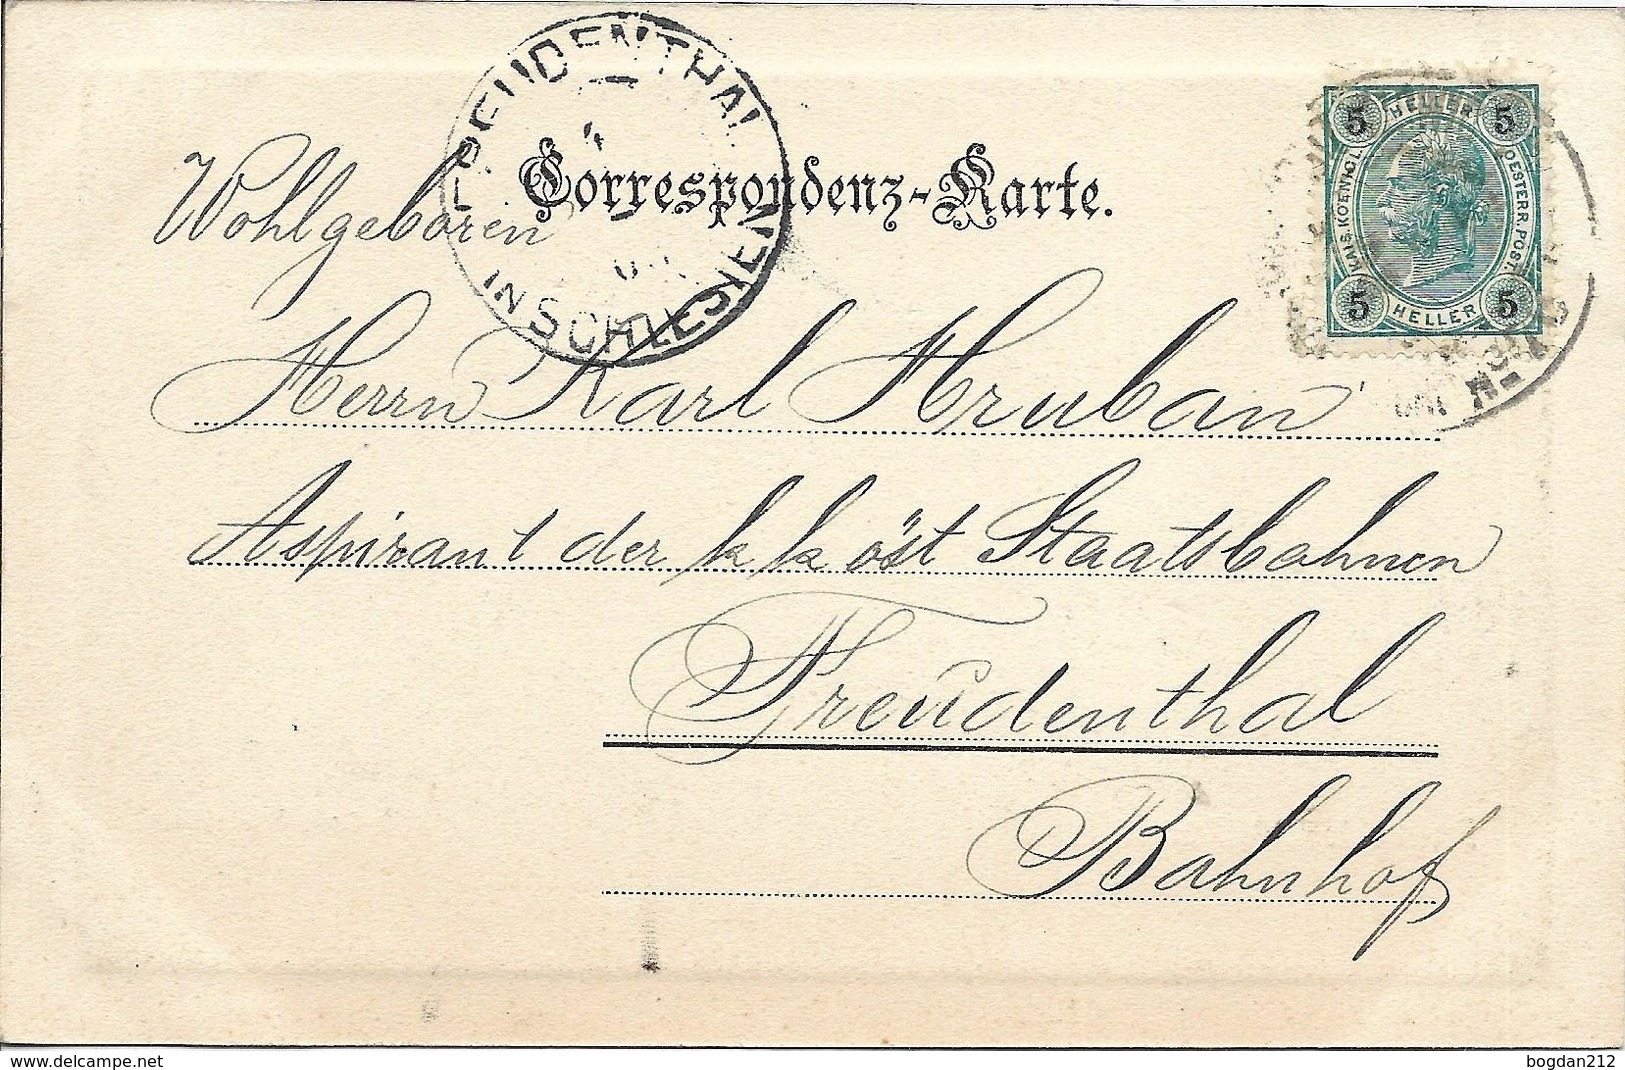 FREUDENTHAL
IN SCHLESIEN
Correspondenz-Karte.
HELLER
KAIS. KOENIGL.
OESTERR. POST.
5 5
5 5
HELLER
Wohlgeboren
Herrn Karl Hruban
Aspirant der k k öst Staatsbahnen
Freudenthal
Bahnhof
www.delcampe.net
bogdan212